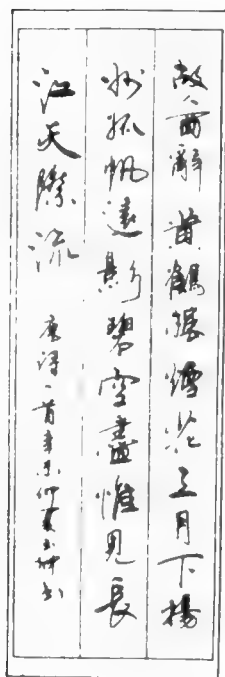 故人西辭黃鶴樓煙花三月下揚
州孤帆遠影碧空盡惟見長
江天際流 唐詩一首辛未仲夏